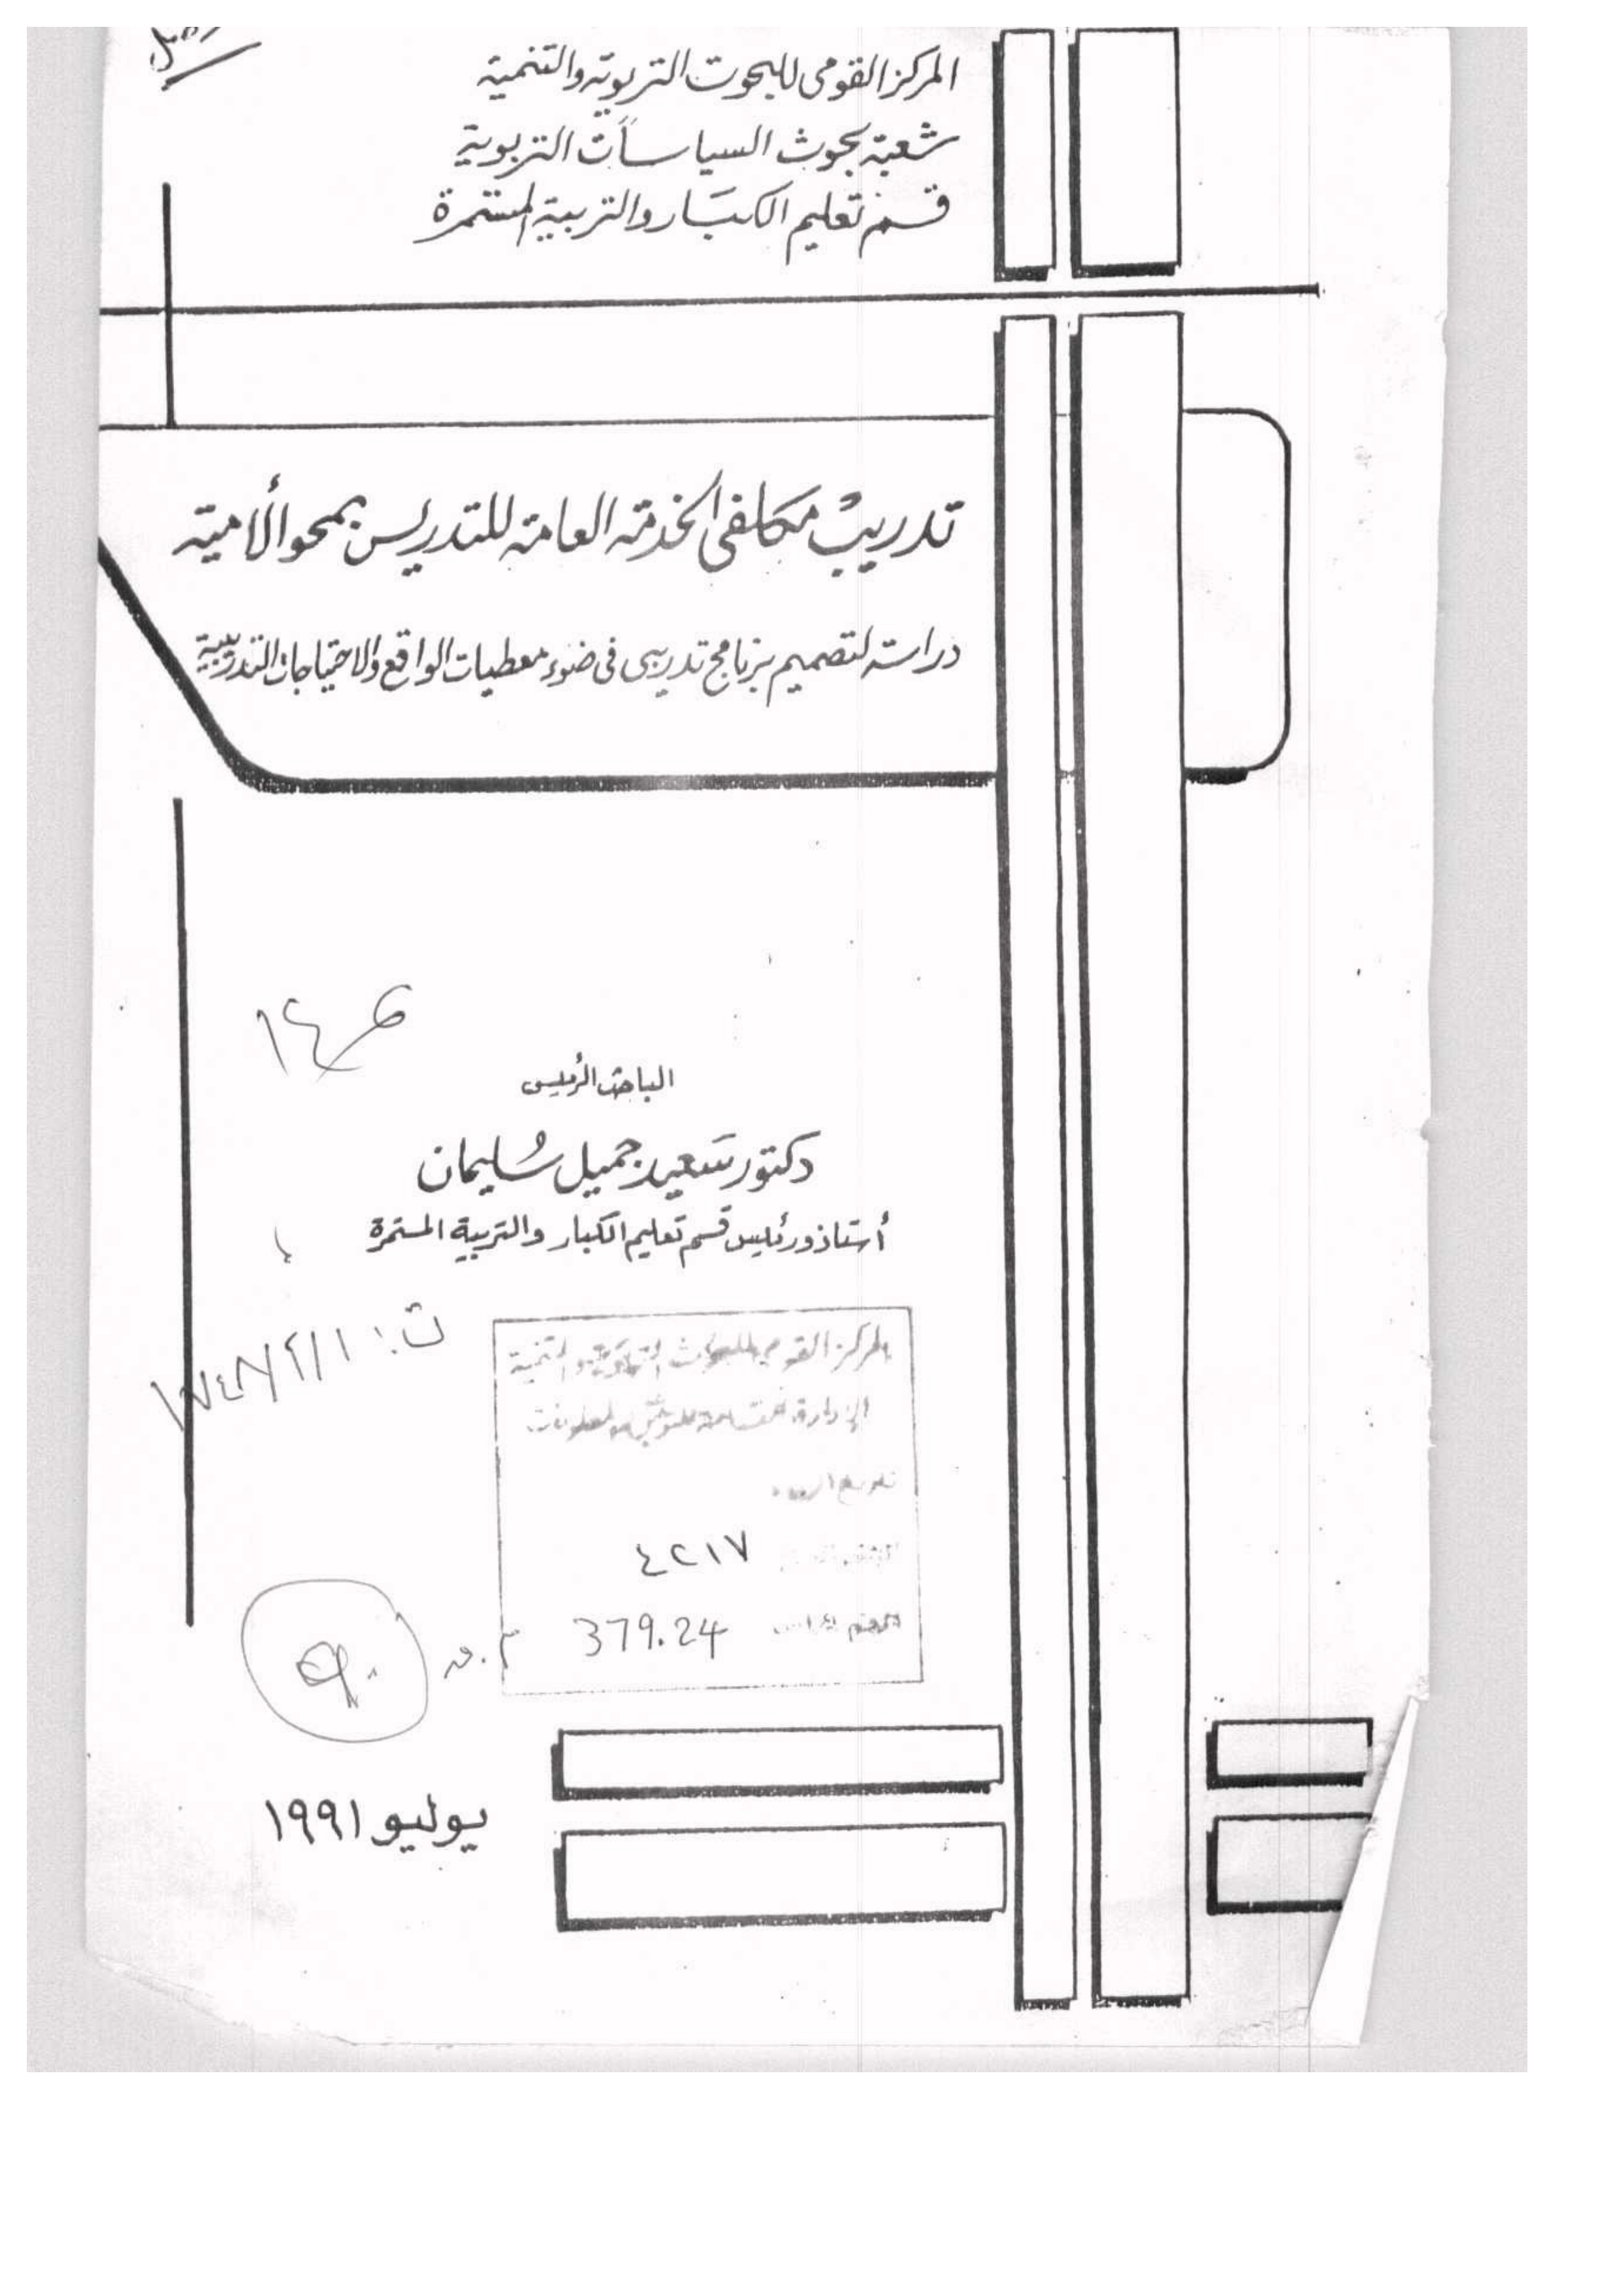 المركز القومى للبحوث التربوية والتنمية
شعبة بحوث السياسات التربوية
قسم تعليم الكبار والتربية المستمرة
تدريب مكلفى الخدمة العامة للتدريس بمحو الأمية
دراسة لتصميم برنامج تدريبى فى ضوء معطيات الواقع والاحتياجات التدريبية
الباحث الرئيس
دكتور سعيد جميل سليمان
أستاذ ورئيس قسم تعليم الكبار والتربية المستمرة
المركز القومي للبحوث التربوية والتنمية
الإدارة العامة للتوثيق والمعلومات
٤٢١٧
379.24
يوليو ١٩٩١